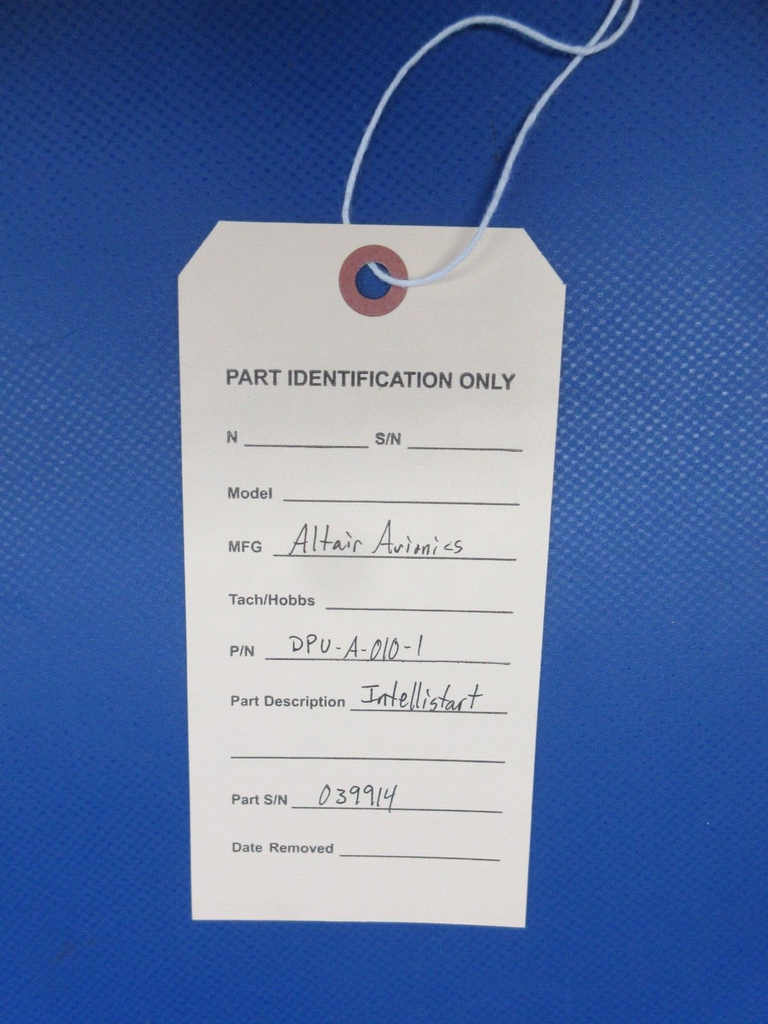 PART IDENTIFICATION ONLY
N S/N
Model
MFG Altair Avionics
Tach/Hobbs
P/N DPU-A-010-1
Part Description Intellistart
Part S/N 039914
Date Removed